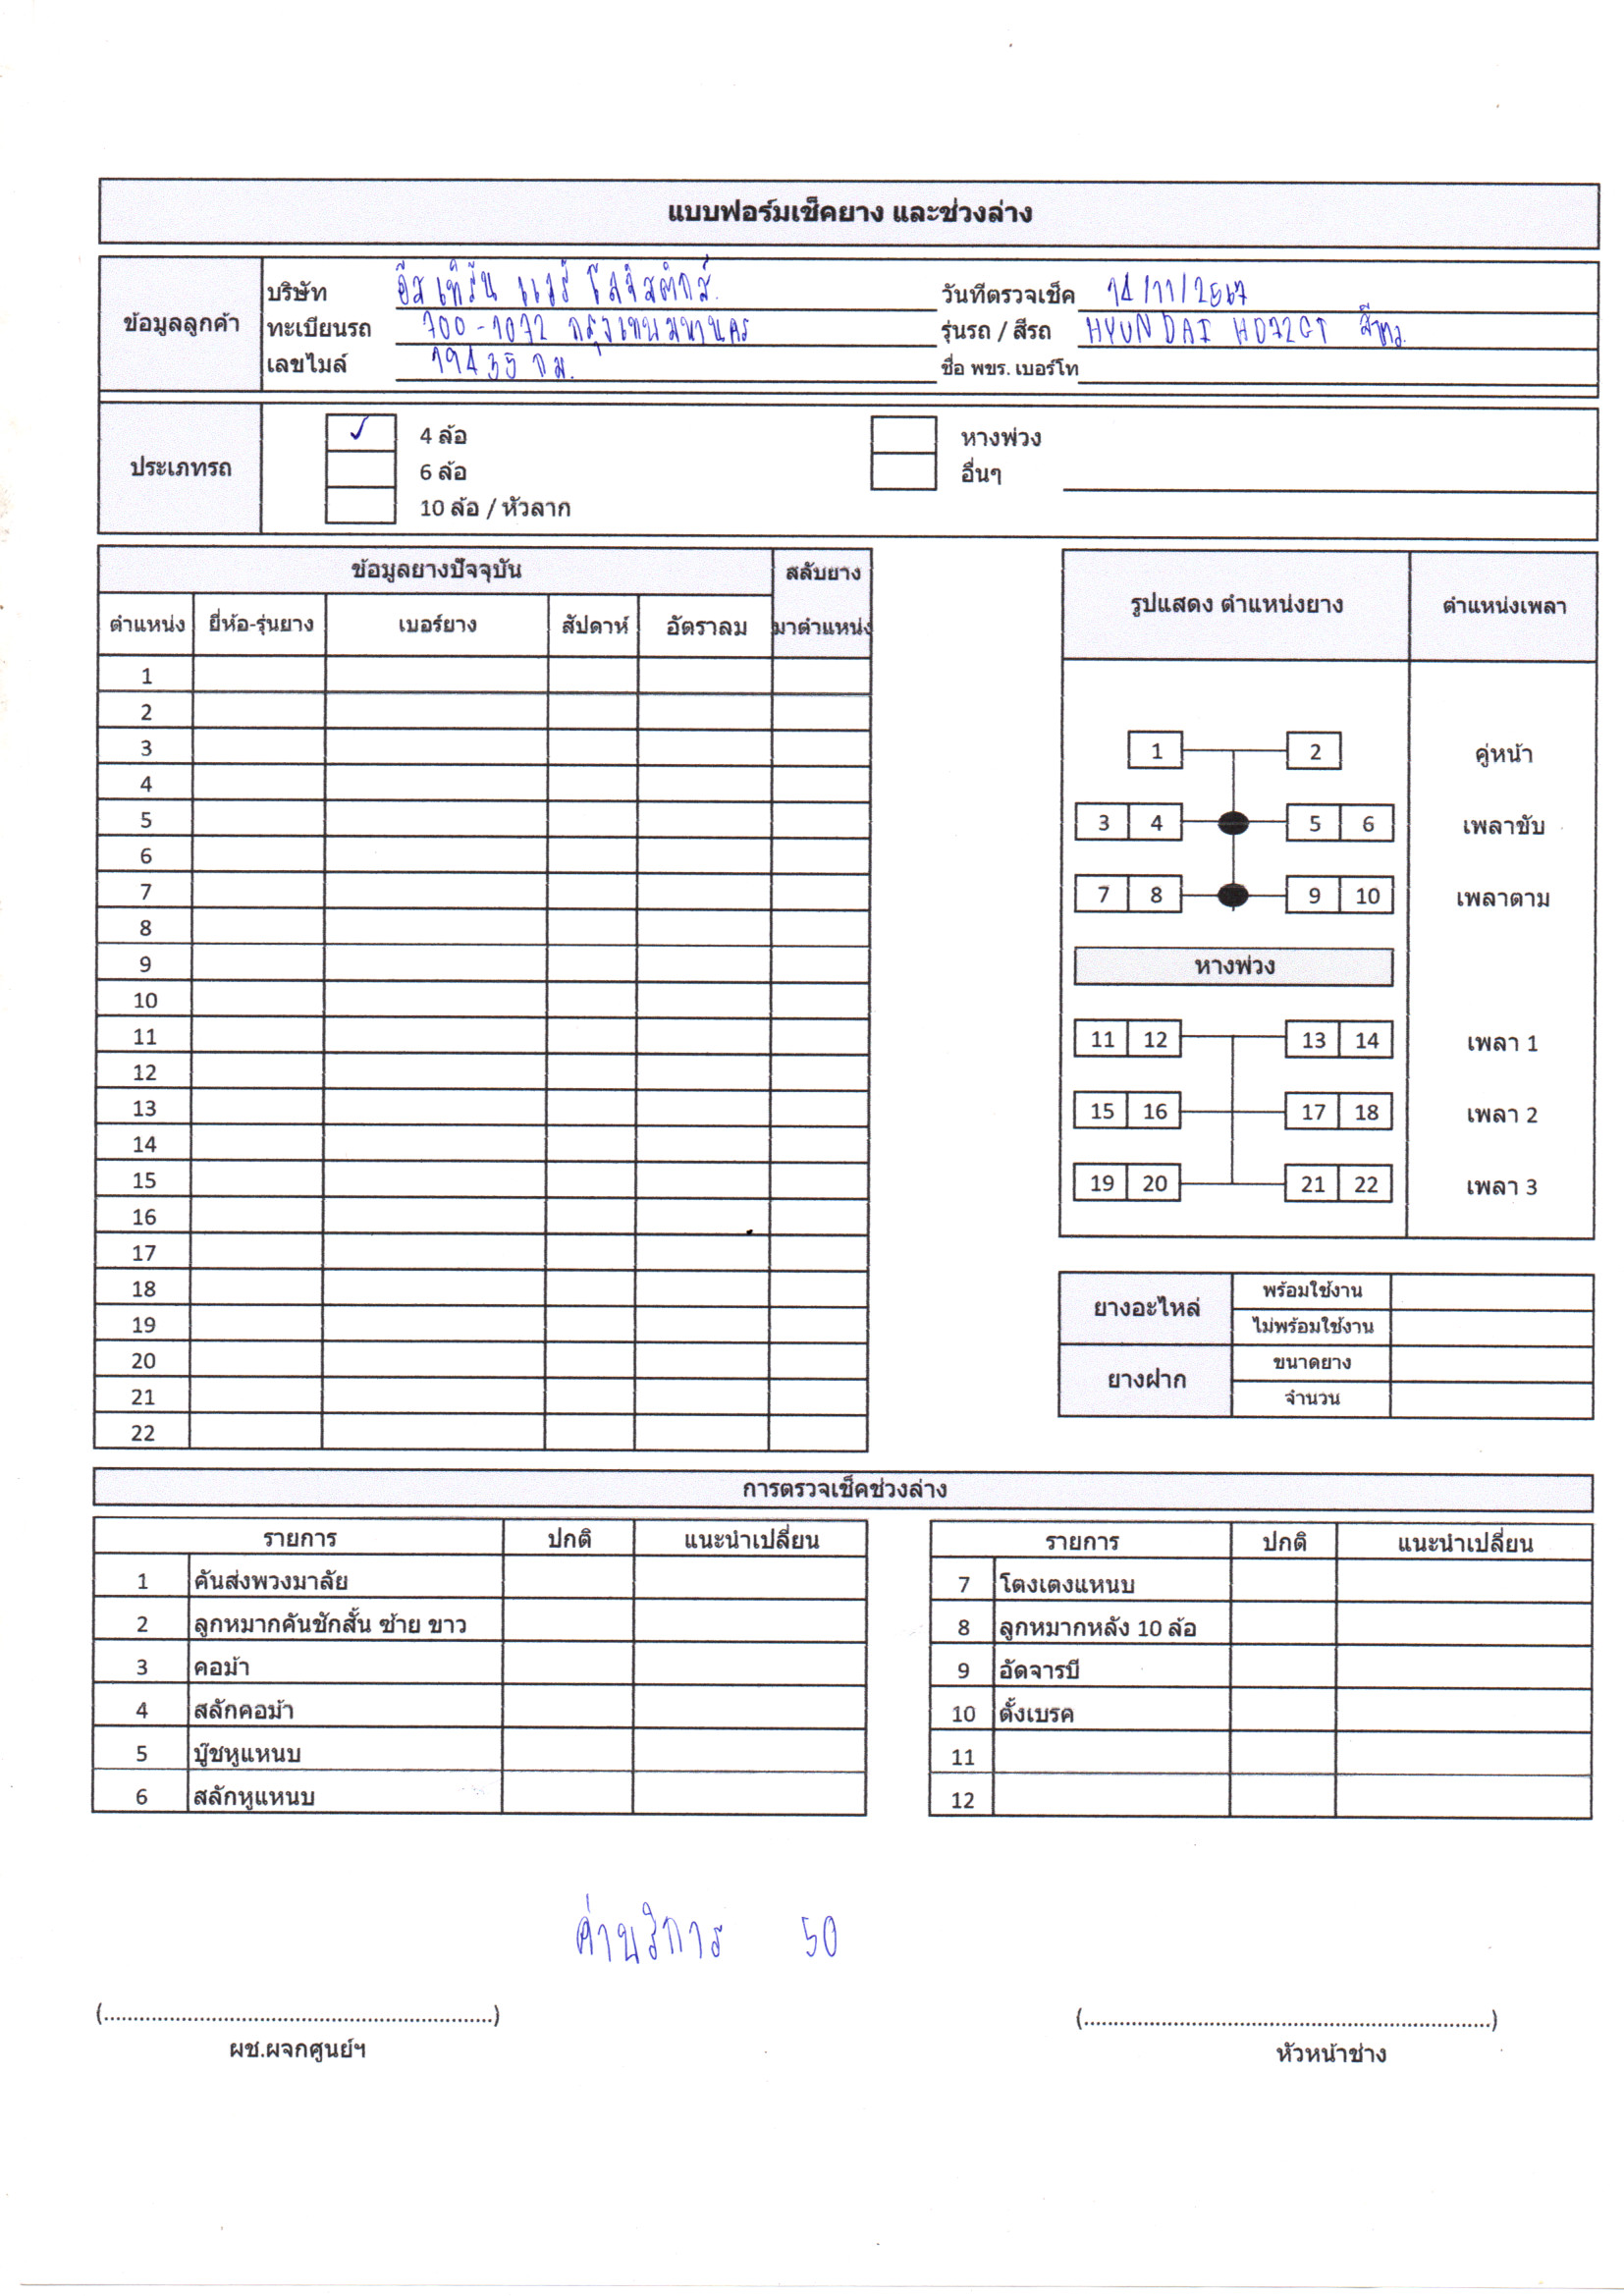 แบบฟอร์มเช็คยาง และช่วงล่าง
ข้อมูลลูกค้า
บริษัท อีสเทิร์น แอร์ โลจิสติกส์
วันที่ตรวจเช็ค 14/11/2567
ทะเบียนรถ 700-1072 กรุงเทพมหานคร
รุ่นรถ / สีรถ HYUNDAI HD72GT สีขาว
เลขไมล์ 19435 กม.
ชื่อ พขร. เบอร์โท
ประเภทรถ
✓ 4 ล้อ
หางพ่วง
6 ล้อ
อื่นๆ
10 ล้อ / หัวลาก
ข้อมูลยางปัจจุบัน สลับยาง
ตำแหน่ง ยี่ห้อ-รุ่นยาง เบอร์ยาง สัปดาห์ อัตราลม มาตำแหน่ง
1
2
3
4
5
6
7
8
9
10
11
12
13
14
15
16
17
18
19
20
21
22
รูปแสดง ตำแหน่งยาง ตำแหน่งเพลา
1 2 คู่หน้า
3 4 5 6 เพลาขับ
7 8 9 10 เพลาตาม
หางพ่วง
11 12 13 14 เพลา 1
15 16 17 18 เพลา 2
19 20 21 22 เพลา 3
ยางอะไหล่ พร้อมใช้งาน
ไม่พร้อมใช้งาน
ยางฝาก ขนาดยาง
จำนวน
การตรวจเช็คช่วงล่าง
รายการ ปกติ แนะนำเปลี่ยน
1 คันส่งพวงมาลัย
2 ลูกหมากคันชักสั้น ซ้าย ขาว
3 คอม้า
4 สลักคอม้า
5 บู๊ชหูแหนบ
6 สลักหูแหนบ
รายการ ปกติ แนะนำเปลี่ยน
7 โตงเตงแหนบ
8 ลูกหมากหลัง 10 ล้อ
9 อัดจารบี
10 ตั้งเบรค
11
12
ค่าบริการ 50
(................................................................)
ผช.ผจกศูนย์ฯ
(................................................................)
หัวหน้าช่าง